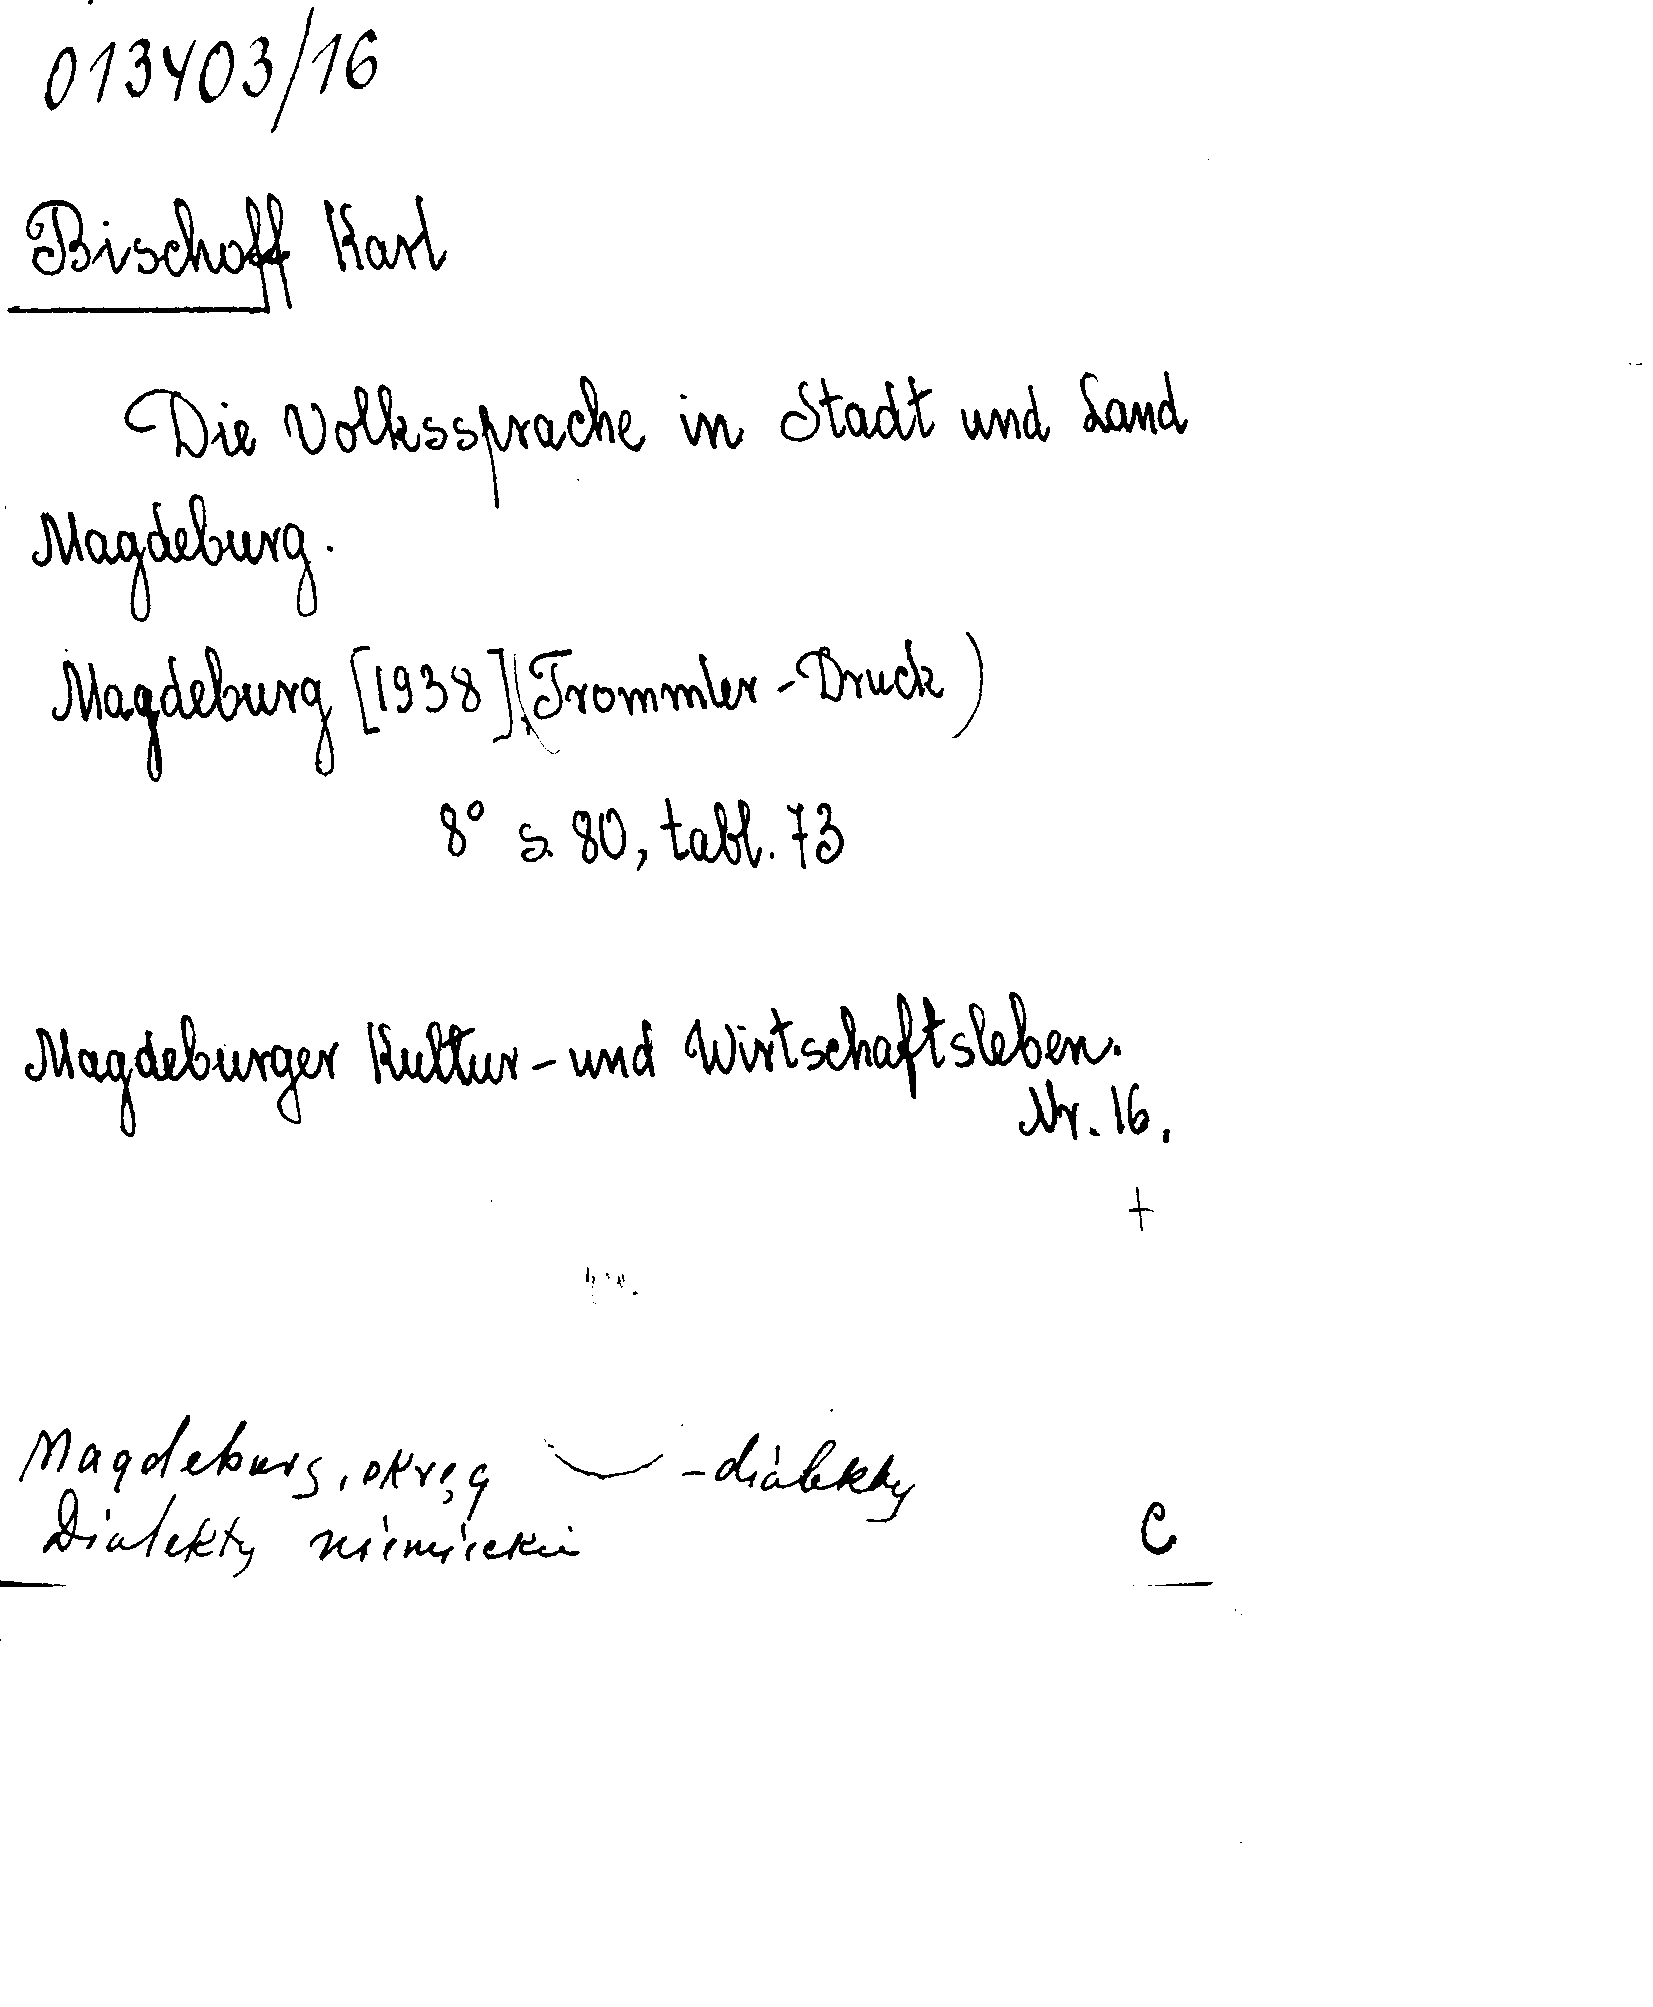 013403/16
Bischoff Karl
Die Volkssprache in Stadt und Land
Magdeburg.
Magdeburg [1938] (Trommler-Druck)
8° s. 80, tabl. 73
Magdeburger Kultur- und Wirtschaftsleben.
Nr. 16.
+
Magdeburg, okręg - dialekty
Dialekty niemieckie
C